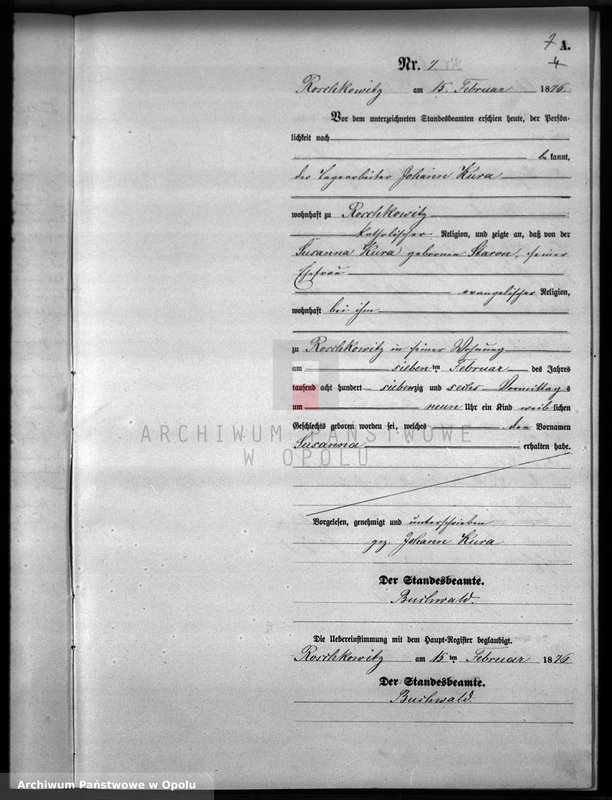 7 A.
4
Nr. 7.
Roschkowitz am 15. Februar 1876.
Vor dem unterzeichneten Standesbeamten erschien heute, der Persön-
lichkeit nach
be kannt,
der Johann Kura
wohnhaft zu Roschkowitz
katholischer Religion, und zeigte an, daß von der
Susanna Kura geborenen Skaron, seiner
Ehefrau
evangelischer Religion,
wohnhaft bei ihm
zu Roschkowitz in seiner Wohnung
am siebenten Februar des Jahres
tausend acht hundert siebenzig und sechs Vormittag s
um neun Uhr ein Kind weib lichen
Geschlechts geboren worden sei, welches den Vornamen
Susanna erhalten habe.
ARCHIWUM PAŃSTWOWE
W OPOLU
Vorgelesen, genehmigt und unterschrieben
gez. Johann Kura
Der Standesbeamte.
Buchwald.
Die Uebereinstimmung mit dem Haupt-Register beglaubigt.
Roschkowitz am 15 ten Februar 1876
Der Standesbeamte.
Buchwald.
Archiwum Państwowe w Opolu